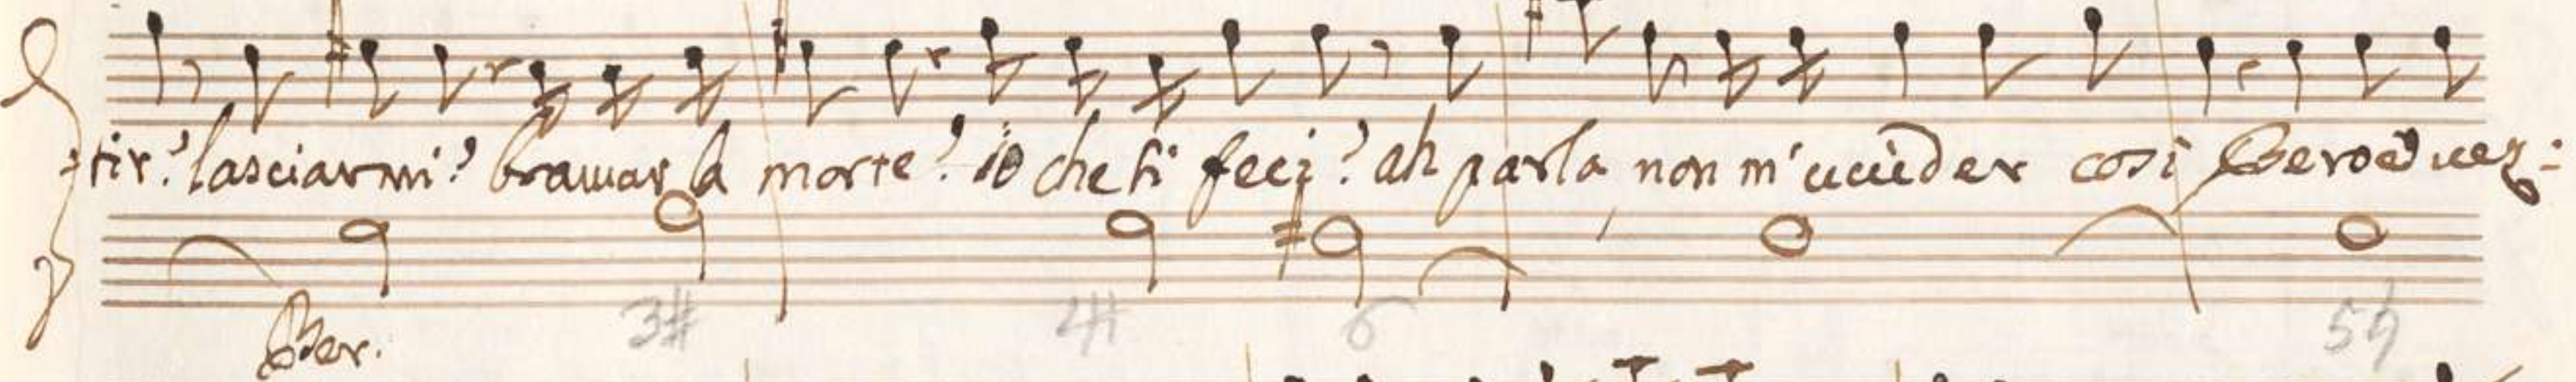 =tir? lasciarmi? bramar la morte? io che ti feci? ah parla non m'uccider così Beroe vez=
3# 4# 6 5♮
Ber.